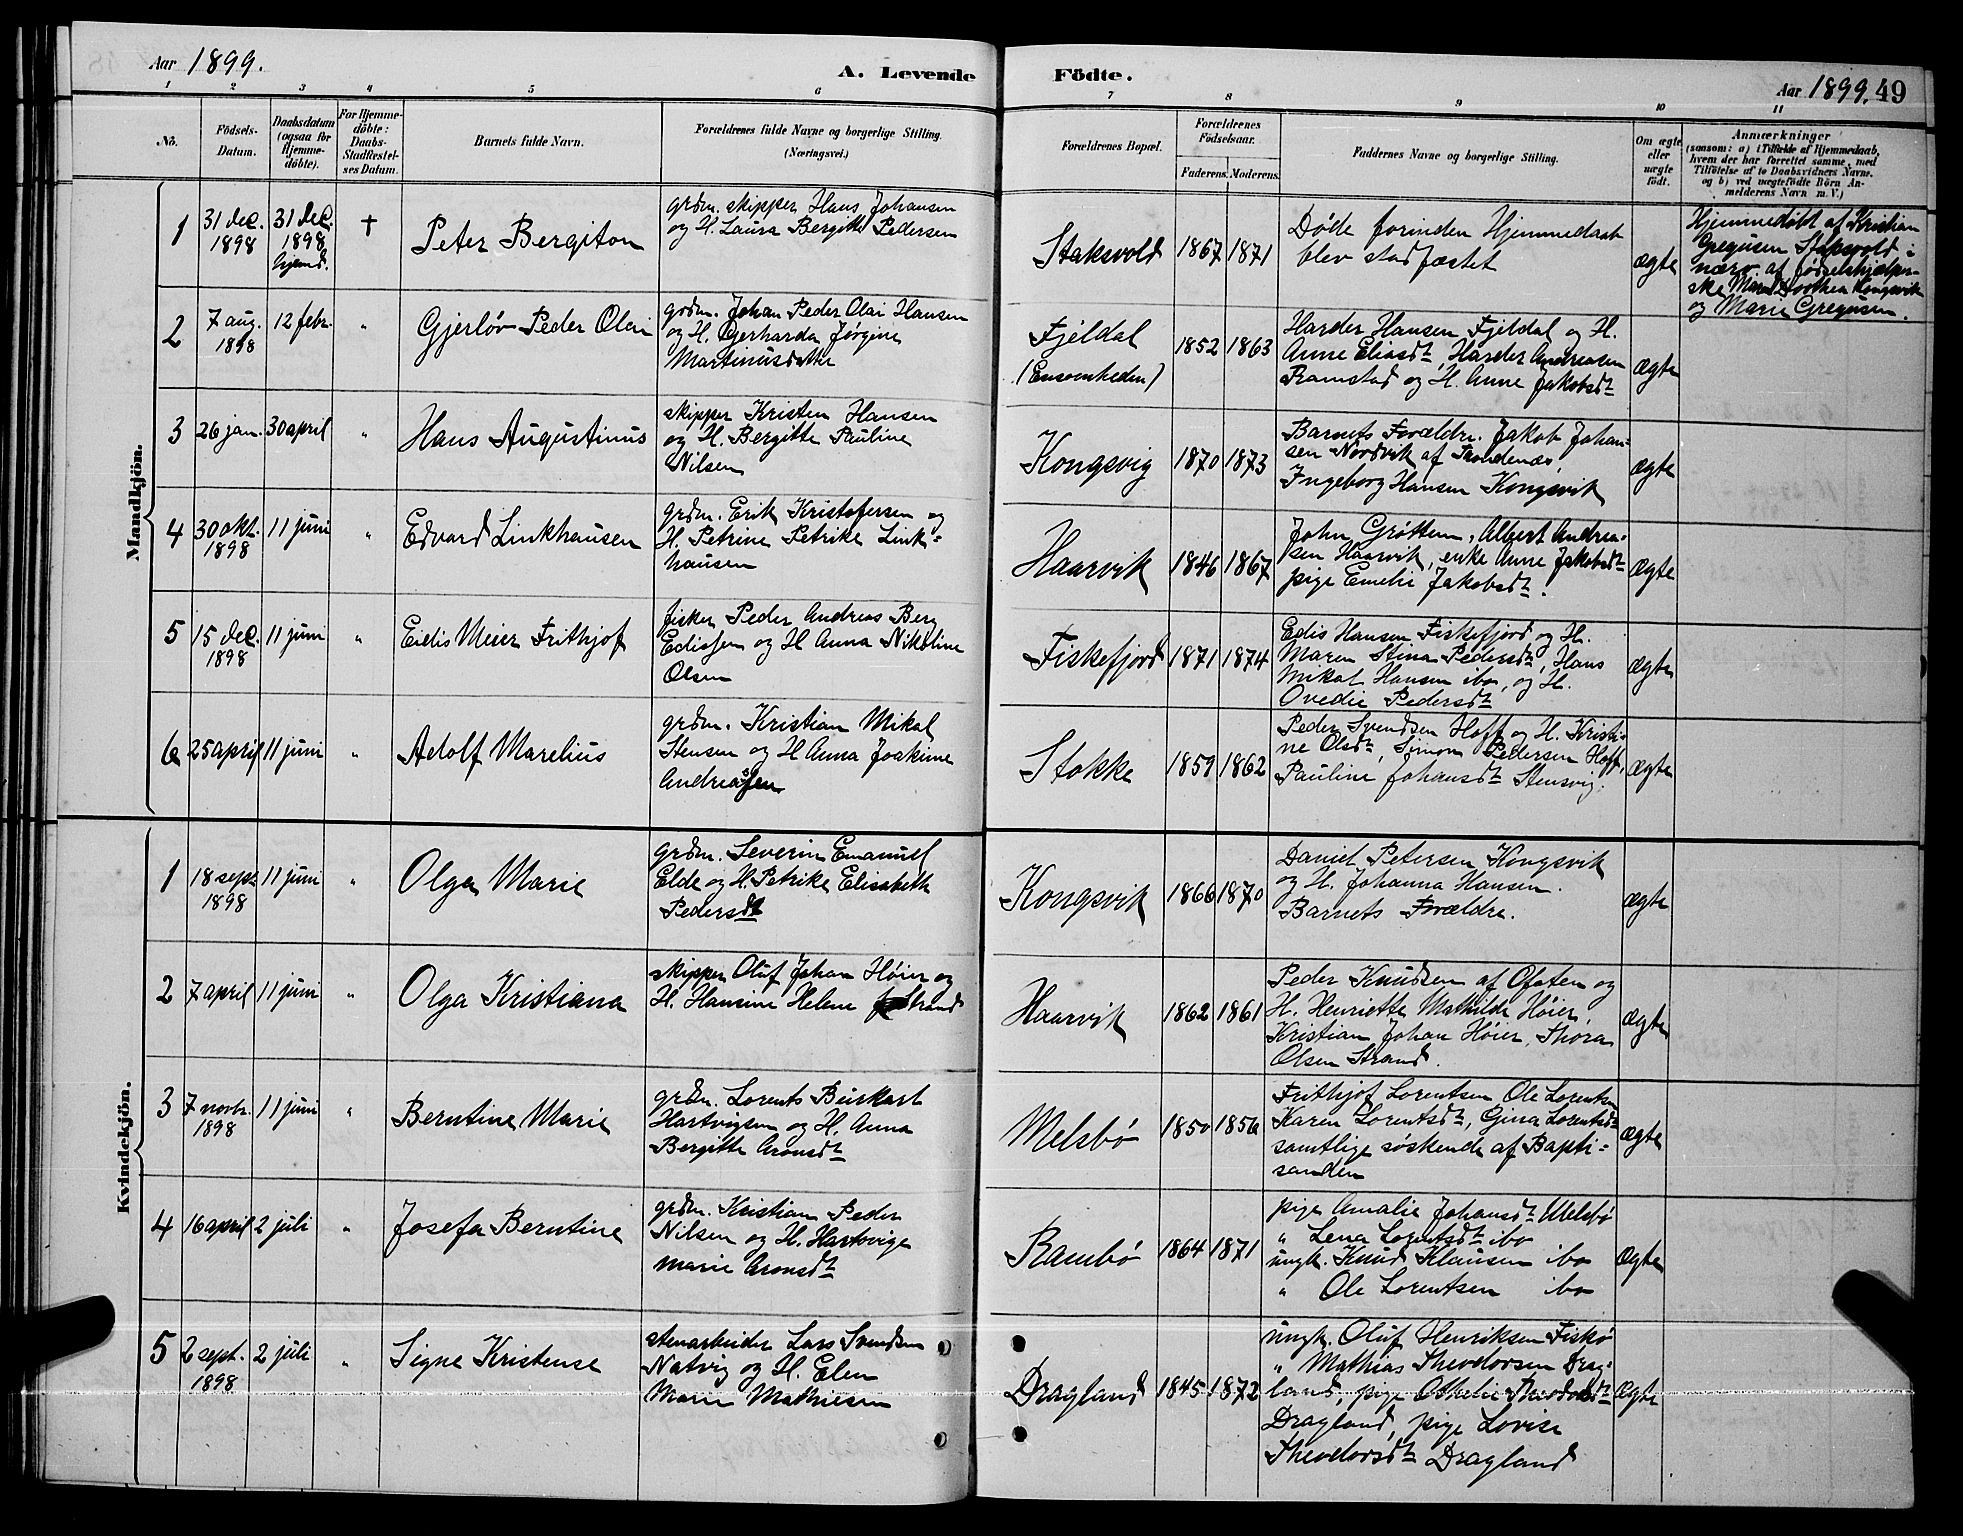 Aar 1899.
A. Levende Födte.
Aar 1899. 49
1 2 3 4 5 6 7 8 9 10 11
No.
Födsels-Datum.
Daabsdatum (ogsaa for Hjemme-döbte).
For Hjemme-döbte: Daabs-Stadfæstel-ses Datum.
Barnets fulde Navn.
Forældrenes fulde Navne og borgerlige Stilling.
(Næringsvei.)
Forældrenes Bopæl.
Forældrenes Födselsaar.
Faderens. Moderens.
Faddernes Navne og borgerlige Stilling.
Om ægte eller uægte födt.
Anmærkninger
(saasom: a) i Tilfælde af Hjemmedaab, hvem der har forrettet samme, med Tilföielse af to Daabsvidners Navne, og b) ved uægtefödte Börn An-melderens Navn m. V.)
Mandkjön.
1 31 dec. 1898 31 dec. 1898 hjemd. † Peter Bergiton
grdm. skipper Hans Johansen
og H. Laura Bergitte Pedersen
Staksvold 1867 1871
Døde forinden Hjemmedaab
blev stadfæstet
ægte
Hjemmedøbt af Kristian
Gregusen Staksvold i
nærv. af fødselshjælper-
ske Maren Dorthea Kongsvik
og Marie Gregusen.
2 7 aug. 1898 12 febr. " Gjerløv Peder Olai
grdm. Johan Peder Olai Hansen
og H. Gjerharda Jørgine
Martinusdatter
Fjeldal
(Ensomheden) 1852 1863
Harder Hansen Fjeldal og H.
Anne Eliasdt, Harder Andreasen
Ramstad og H. Anne Jakobsdt
ægte
3 26 jan. 30 april " Hans Augustinus
skipper Kristen Hansen
og H. Bergitte Pauline
Nilsen
Kongsvig 1870 1873
Barnets Forældre. Jakob Johan-
sen Nordvik af Trondenæs,
Ingeborg Hansen Kongsvik
ægte
4 30 okt. 1898 11 juni " Edvard Linkhausen
grdm. Erik Kristofersen og
H. Petrine Petrike Link-
hausen
Haarvik 1846 1867
John Grøttem, Albert Andrea-
sen Haarvik, enke Anne Jakobsdt
pige Emelie Jakobsdt.
ægte
5 15 dec. 1898 11 juni " Eidis Meier Frithjof
fisker Peder Andreas Berg
Edissen og H Anna Nikoline
Olsen
Fiskefjord 1871 1874
Edis Hansen Fiskefjord og H.
Maren Stina Pedersdt, Hans
Mikal Hansen ibo, og H.
Ovedie Pedersdt
ægte
6 25 april 11 juni " Adolf Marelius
grdm. Kristian Mikal
Stensen og H Anna Joakime
Andreassen
Stokke 1859 1862
Peder Svendsen Hoff og H. Kristi-
ne Olsdt, Simon Pedersen Hoff,
Pauline Johansdt Stensvig.
ægte
Kvindekjön.
1 18 sept. 1898 11 juni " Olga Marie
grdm. Severin Emanuel
Elde og H. Petrike Elisabeth
Pedersdt
Kongsvik 1866 1870
Daniel Petersen Kongsvik
og H. Johanna Hansen.
Barnets Forældre.
ægte
2 7 april 11 juni " Olga Kristiana
skipper Oluf Johan Høier og
H. Hansine Helene Strand
Haarvik 1862 1861
Peder Knudsen af Ofoten og
H. Henriette Mathilde Høier,
Kristian Johan Høier, Thora
Olsen Strand.
ægte
3 7 novbr. 1898 11 juni " Berntine Marie
grdm. Lorents Burkart
Hartvigsen og H. Anna
Bergitte Aronsdt
Melsbø 1850 1856
Frithjof Lorentsen Ole Lorentsen
Karen Lorentsdt, Gina Lorentsdt
samtlige søskende af Bapti-
sanden
ægte
4 16 april 2 juli " Josefa Berntine
grdm. Kristian Peder
Nilsen og H. Hartvige
Marie Aronsdt
Rambø 1864 1871
pige Amalie Johansdt Melsbø
" Lena Lorentsdt ibo
ungk. Knud Klausen ibo
" Ole Lorentsen ibo
ægte
5 2 sept. 1898 2 juli " Signe Kristense
stenarbeider Lars Svendsen
Natvig og H. Elen
Marie Mathiesen
Dragland 1845 1872
ungk. Oluf Henriksen Fiskø
" Mathias Theodorsen Drag-
land, pige Othelie Theodorsdt
Dragland, pige Lovise
Theodorsdt Dragland
ægte